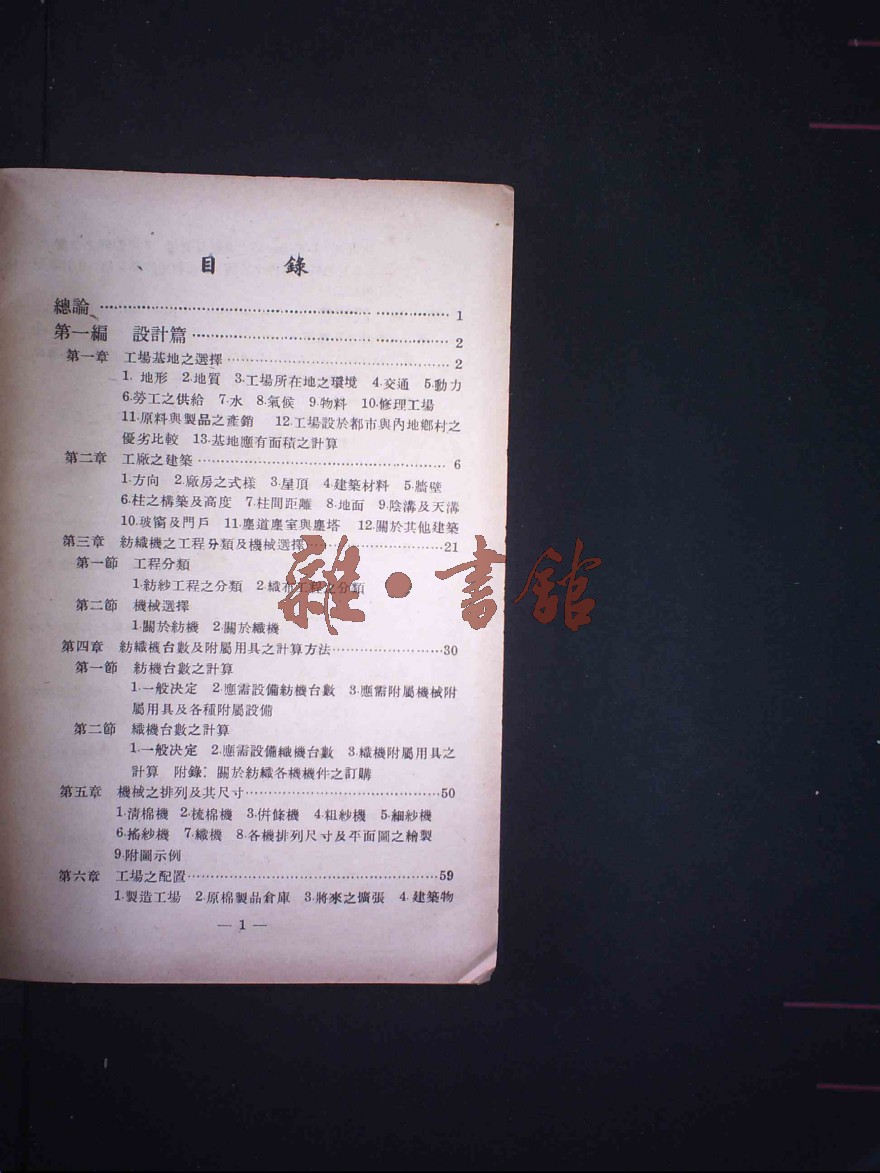 目 錄
總論 …… 1
第一編 設計篇 …… 2
第一章 工場基地之選擇 …… 2
1. 地形 2.地質 3.工場所在地之環境 4.交通 5.動力
6.勞工之供給 7.水 8.氣候 9.物料 10.修理工場
11.原料與製品之產銷 12.工場設於都市與內地鄉村之
優劣比較 13.基地應有面積之計算
第二章 工廠之建築 …… 6
1.方向 2.廠房之式樣 3.屋頂 4.建築材料 5.牆壁
6.柱之構築及高度 7.柱間距離 8.地面 9.陰溝及天溝
10.玻窗及門戶 11.塵道塵室與塵塔 12.關於其他建築
第三章 紡織機之工程分類及機械選擇 …… 21
第一節 工程分類
1.紡紗工程之分類 2.織布工程之分類
第二節 機械選擇
1.關於紡機 2.關於織機
第四章 紡織機台數及附屬用具之計算方法 …… 30
第一節 紡機台數之計算
1.一般決定 2.應需設備紡機台數 3.應需附屬機械附
屬用具及各種附屬設備
第二節 織機台數之計算
1.一般決定 2.應需設備織機台數 3.織機附屬用具之
計算 附錄：關於紡織各機機件之訂購
第五章 機械之排列及其尺寸 …… 50
1.清棉機 2.梳棉機 3.併條機 4.粗紗機 5.細紗機
6.搖紗機 7.織機 8.各機排列尺寸及平面圖之繪製
9.附圖示例
第六章 工場之配置 …… 59
1.製造工場 2.原棉製品倉庫 3.將來之擴張 4.建築物
— 1 —
雜·書館